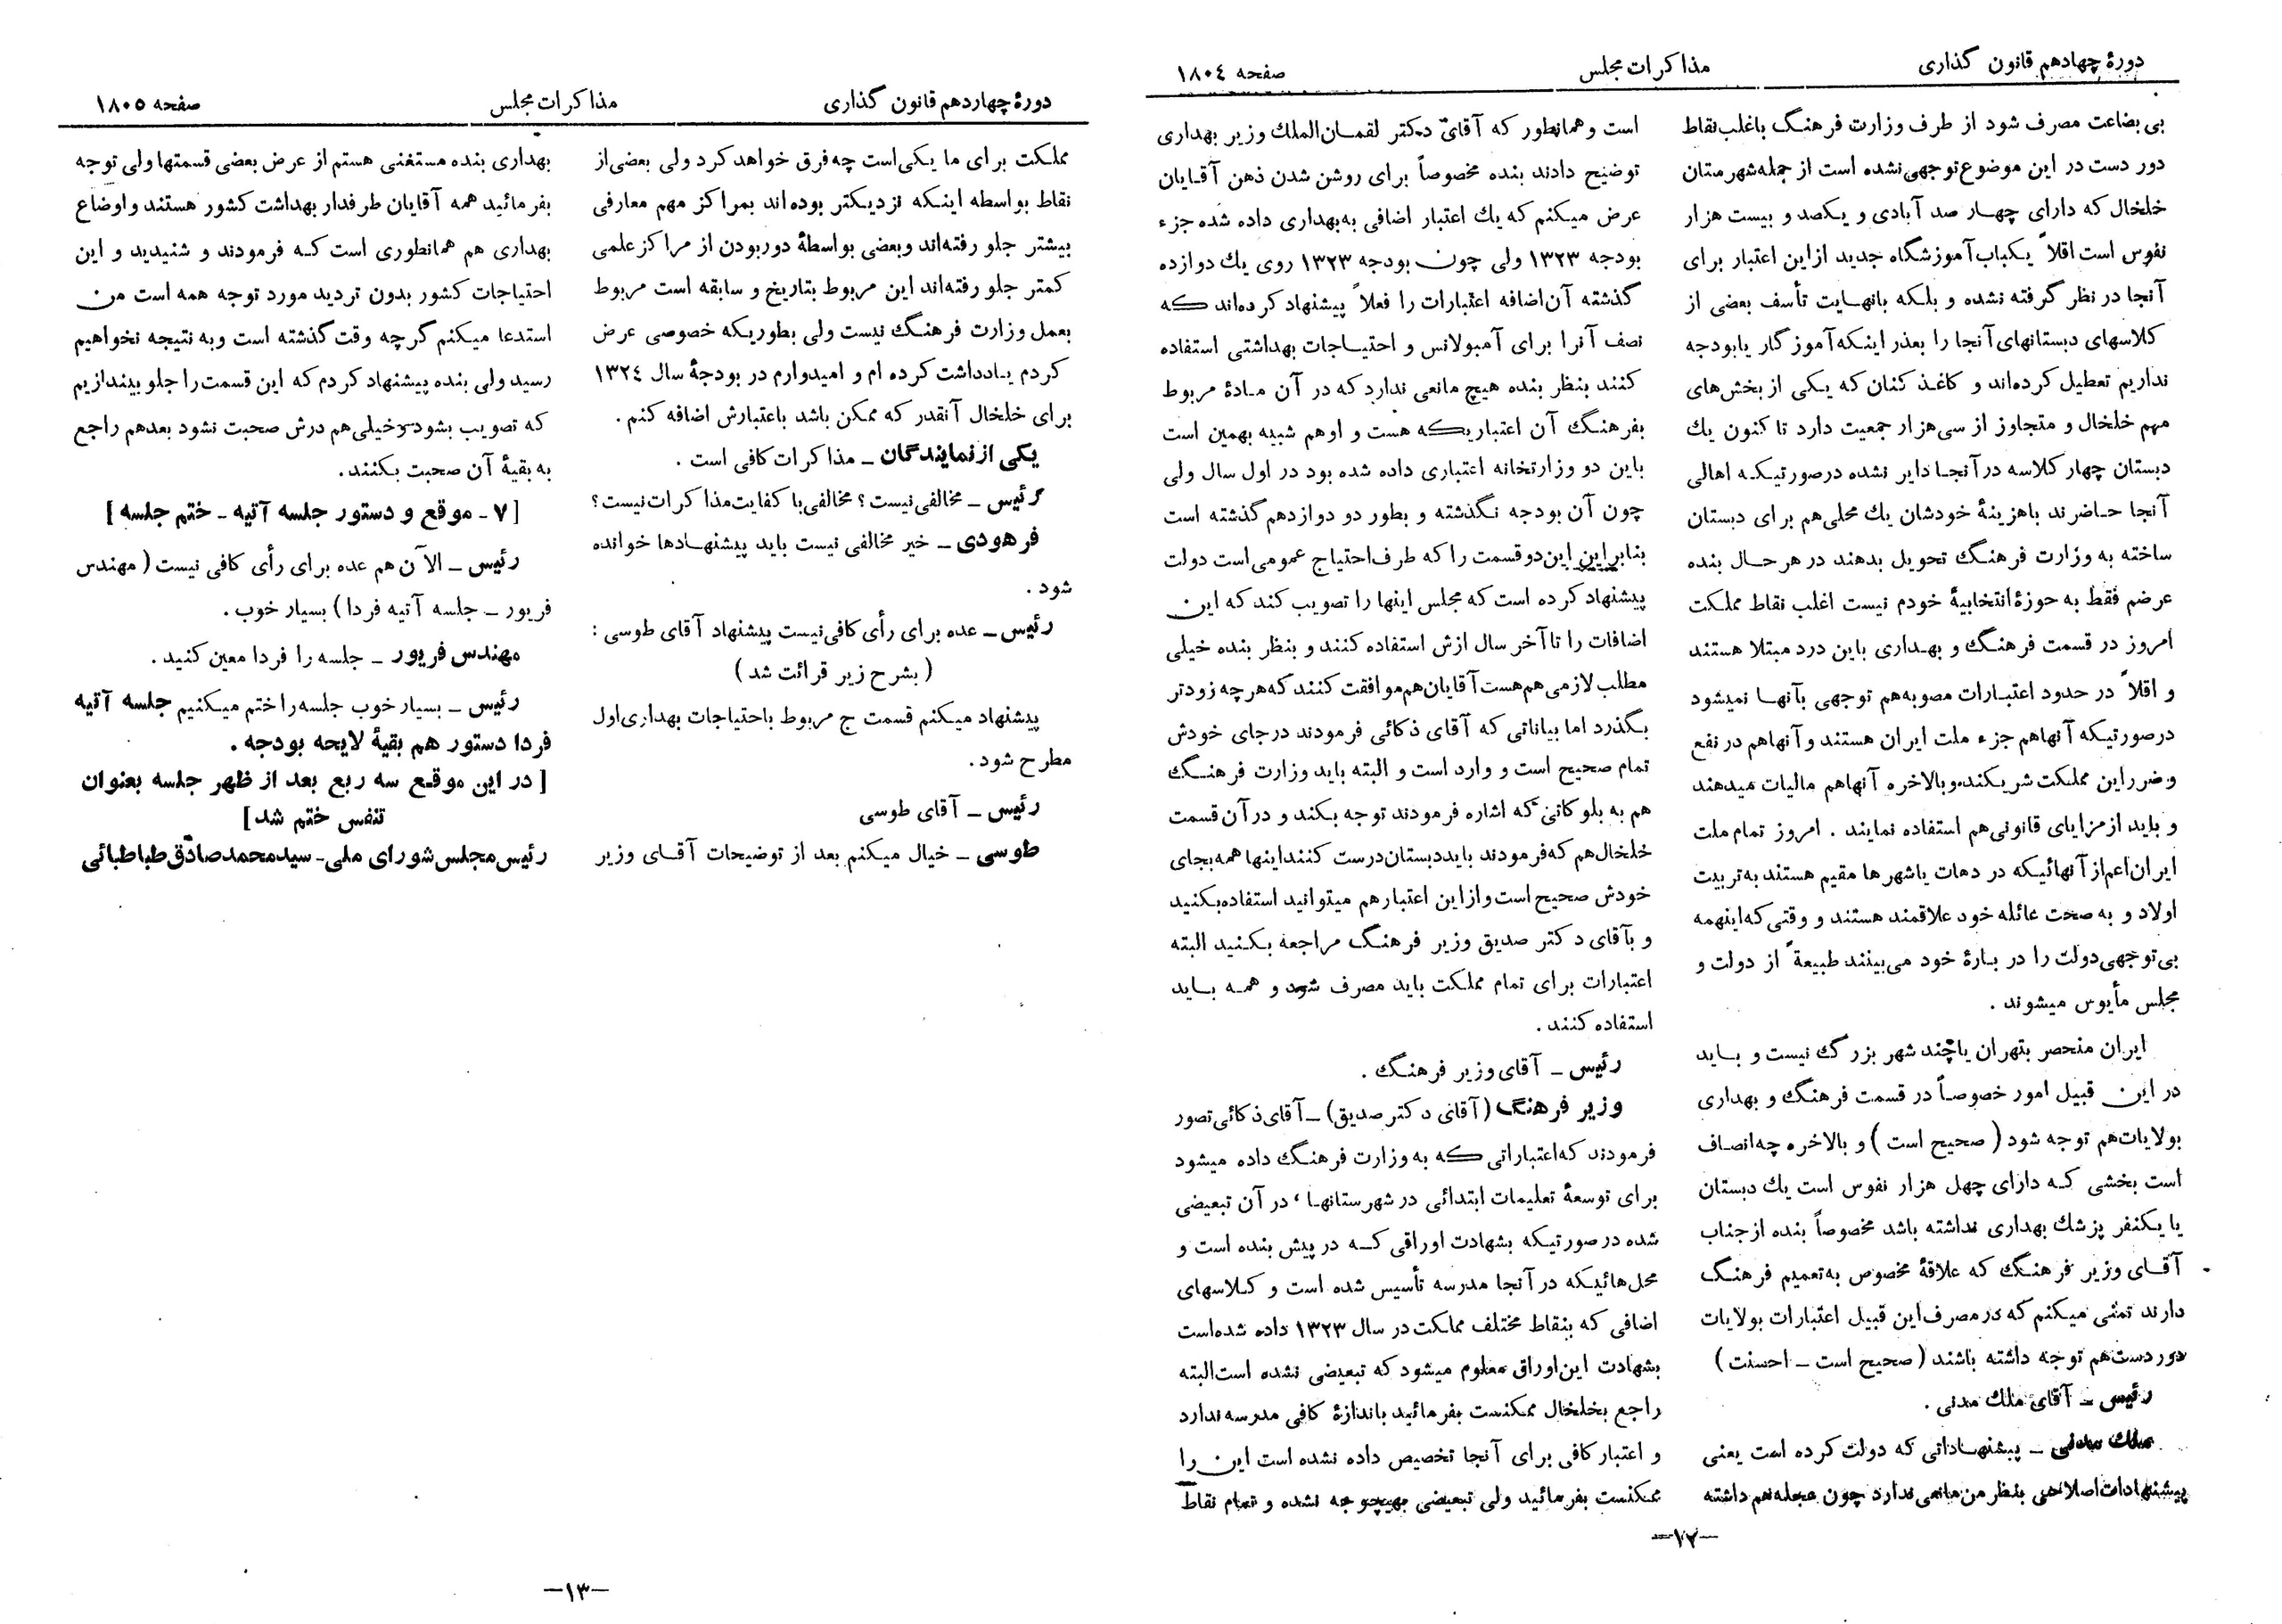 دورهٔ چهاردهم قانون گذاری
مذاکرات مجلس
صفحه ۱۸۰٤
بی بضاعت مصرف شود از طرف وزارت فرهنگ باغلب نقاط
دور دست در این موضوع توجهی نشده است از جمله شهرستان
خلخال که دارای چهار صد آبادی و یکصد و بیست هزار
نفوس است اقلاً یکباب آموزشگاه جدید از این اعتبار برای
آنجا در نظر گرفته نشده و بلکه بانهایت تأسف بعضی از
کلاسهای دبستانهای آنجا را بعذر اینکه آموزگار یا بودجه
نداریم تعطیل کرده‌اند و کاغذ کنان که یکی از بخش‌های
مهم خلخال و متجاوز از سی هزار جمعیت دارد تا کنون یك
دبستان چهار کلاسه در آنجا دایر نشده درصورتیکه اهالی
آنجا حاضرند باهزینهٔ خودشان یك محلی هم برای دبستان
ساخته به وزارت فرهنگ تحویل بدهند در هر حال بنده
عرضم فقط به حوزهٔ انتخابیهٔ خودم نیست اغلب نقاط مملکت
امروز در قسمت فرهنگ و بهداری باین درد مبتلا هستند
و اقلاً در حدود اعتبارات مصوبه هم توجهی بآنها نمیشود
درصورتیکه آنهاهم جزء ملت ایران هستند و آنهاهم در نفع
وضرر این مملکت شریکند و بالاخره آنهاهم مالیات میدهند
و باید از مزایای قانونی هم استفاده نمایند . امروز تمام ملت
ایران اعم از آنهائیکه در دهات یا شهرها مقیم هستند به تربیت
اولاد و به صحت عائله خود علاقمند هستند و وقتی که اینهمه
بی توجهی دولت را در بارهٔ خود می‌بینند طبیعةً از دولت و
مجلس مأیوس میشوند .
ایران منحصر بتهران یا چند شهر بزرگ نیست و باید
در این قبیل امور خصوصاً در قسمت فرهنگ و بهداری
بولایات هم توجه شود ( صحیح است ) و بالاخره چه انصاف
است بخشی که دارای چهل هزار نفوس است یك دبستان
یا یکنفر پزشك بهداری نداشته باشد مخصوصاً بنده از جناب
آقای وزیر فرهنگ که علاقهٔ مخصوص به تعمیم فرهنگ
دارند تمنی میکنم که در مصرف این قبیل اعتبارات بولایات
دور دست هم توجه داشته باشند ( صحیح است ـ احسنت )
رئیس ـ آقای ملك مدنی .
ملك مدنی ـ پیشنهاداتی که دولت کرده است یعنی
پیشنهادات اصلاحی بنظر من مانعی ندارد چون عجله هم داشته
است و همانطور که آقای دکتر لقمان الملك وزیر بهداری
توضیح دادند بنده مخصوصاً برای روشن شدن ذهن آقایان
عرض میکنم که یك اعتبار اضافی به بهداری داده شده جزء
بودجه ۱۳۲۳ ولی چون بودجه ۱۳۲۳ روی یك دوازده
گذشته آن اضافه اعتبارات را فعلاً پیشنهاد کرده‌اند که
نصف آنرا برای آمبولانس و احتیاجات بهداشتی استفاده
کنند بنظر بنده هیچ مانعی ندارد که در آن مادهٔ مربوط
بفرهنگ آن اعتباریکه هست و او هم شبیه بهمین است
باین دو وزارتخانه اعتباری داده شده بود در اول سال ولی
چون آن بودجه نگذشته و بطور دو دوازدهم گذشته است
بنابراین این دو قسمت را که طرف احتیاج عمومی است دولت
پیشنهاد کرده است که مجلس اینها را تصویب کند که این
اضافات را تا آخر سال ازش استفاده کنند و بنظر بنده خیلی
مطلب لازمی هم هست آقایان هم موافقت کنند که هر چه زودتر
بگذرد اما بیاناتی که آقای ذکائی فرمودند در جای خودش
تمام صحیح است و وارد است و البته باید وزارت فرهنگ
هم به بلوکاتی که اشاره فرمودند توجه بکند و در آن قسمت
خلخال هم که فرمودند باید دبستان درست کنند اینها همه بجای
خودش صحیح است و از این اعتبار هم میتوانید استفاده بکنید
و بآقای دکتر صدیق وزیر فرهنگ مراجعه بکنید البته
اعتبارات برای تمام مملکت باید مصرف شود و همه باید
استفاده کنند .
رئیس ـ آقای وزیر فرهنگ .
وزیر فرهنگ (آقای دکتر صدیق) ـ آقای ذکائی تصور
فرمودند که اعتباراتی که به وزارت فرهنگ داده میشود
برای توسعهٔ تعلیمات ابتدائی در شهرستانها ، در آن تبعیضی
شده در صورتیکه بشهادت اوراقی که در پیش بنده است و
محل‌هائیکه در آنجا مدرسه تأسیس شده است و کلاسهای
اضافی که بنقاط مختلف مملکت در سال ۱۳۲۳ داده شده است
بشهادت این اوراق معلوم میشود که تبعیضی نشده است البته
راجع بخلخال ممکنست بفرمائید باندازهٔ کافی مدرسه ندارد
و اعتبار کافی برای آنجا تخصیص داده نشده است این را
ممکنست بفرمائید ولی تبعیضی بهیچوجه نشده و تمام نقاط
ـ۱۲ـ
دورهٔ چهاردهم قانون گذاری
مذاکرات مجلس
صفحه ۱۸۰۵
مملکت برای ما یکی است چه فرق خواهد کرد ولی بعضی از
نقاط بواسطه اینکه نزدیکتر بوده‌اند بمراکز مهم معارفی
بیشتر جلو رفته‌اند و بعضی بواسطهٔ دور بودن از مراکز علمی
کمتر جلو رفته‌اند این مربوط بتاریخ و سابقه است مربوط
بعمل وزارت فرهنگ نیست ولی بطوریکه خصوصی عرض
کردم یادداشت کرده ام و امیدوارم در بودجهٔ سال ۱۳۲٤
برای خلخال آنقدر که ممکن باشد باعتبارش اضافه کنم .
یکی از نمایندگان ـ مذاکرات کافی است .
رئیس ـ مخالفی نیست ؟ مخالفی با کفایت مذاکرات نیست ؟
فرهودی ـ خیر مخالفی نیست باید پیشنهادها خوانده
شود .
رئیس ـ عده برای رأی کافی نیست پیشنهاد آقای طوسی :
( بشرح زیر قرائت شد )
پیشنهاد میکنم قسمت ج مربوط باحتیاجات بهداری اول
مطرح شود .
رئیس ـ آقای طوسی
طوسی ـ خیال میکنم بعد از توضیحات آقای وزیر
بهداری بنده مستغنی هستم از عرض بعضی قسمتها ولی توجه
بفرمائید همه آقایان طرفدار بهداشت کشور هستند و اوضاع
بهداری هم همانطوری است که فرمودند و شنیدید و این
احتیاجات کشور بدون تردید مورد توجه همه است من
استدعا میکنم گرچه وقت گذشته است و به نتیجه نخواهیم
رسید ولی بنده پیشنهاد کردم که این قسمت را جلو بیندازیم
که تصویب بشود و خیلی هم درش صحبت نشود بعد هم راجع
به بقیهٔ آن صحبت بکنند .
[ ۷ ـ موقع و دستور جلسه آتیه ـ ختم جلسه ]
رئیس ـ الآن هم عده برای رأی کافی نیست ( مهندس
فریور ـ جلسه آتیه فردا ) بسیار خوب .
مهندس فریور ـ جلسه را فردا معین کنید .
رئیس ـ بسیار خوب جلسه را ختم میکنیم جلسه آتیه
فردا دستور هم بقیهٔ لایحه بودجه .
[ در این موقع سه ربع بعد از ظهر جلسه بعنوان
تنفس ختم شد ]
رئیس مجلس شورای ملی ـ سید محمد صادق طباطبائی
ـ۱۳ـ